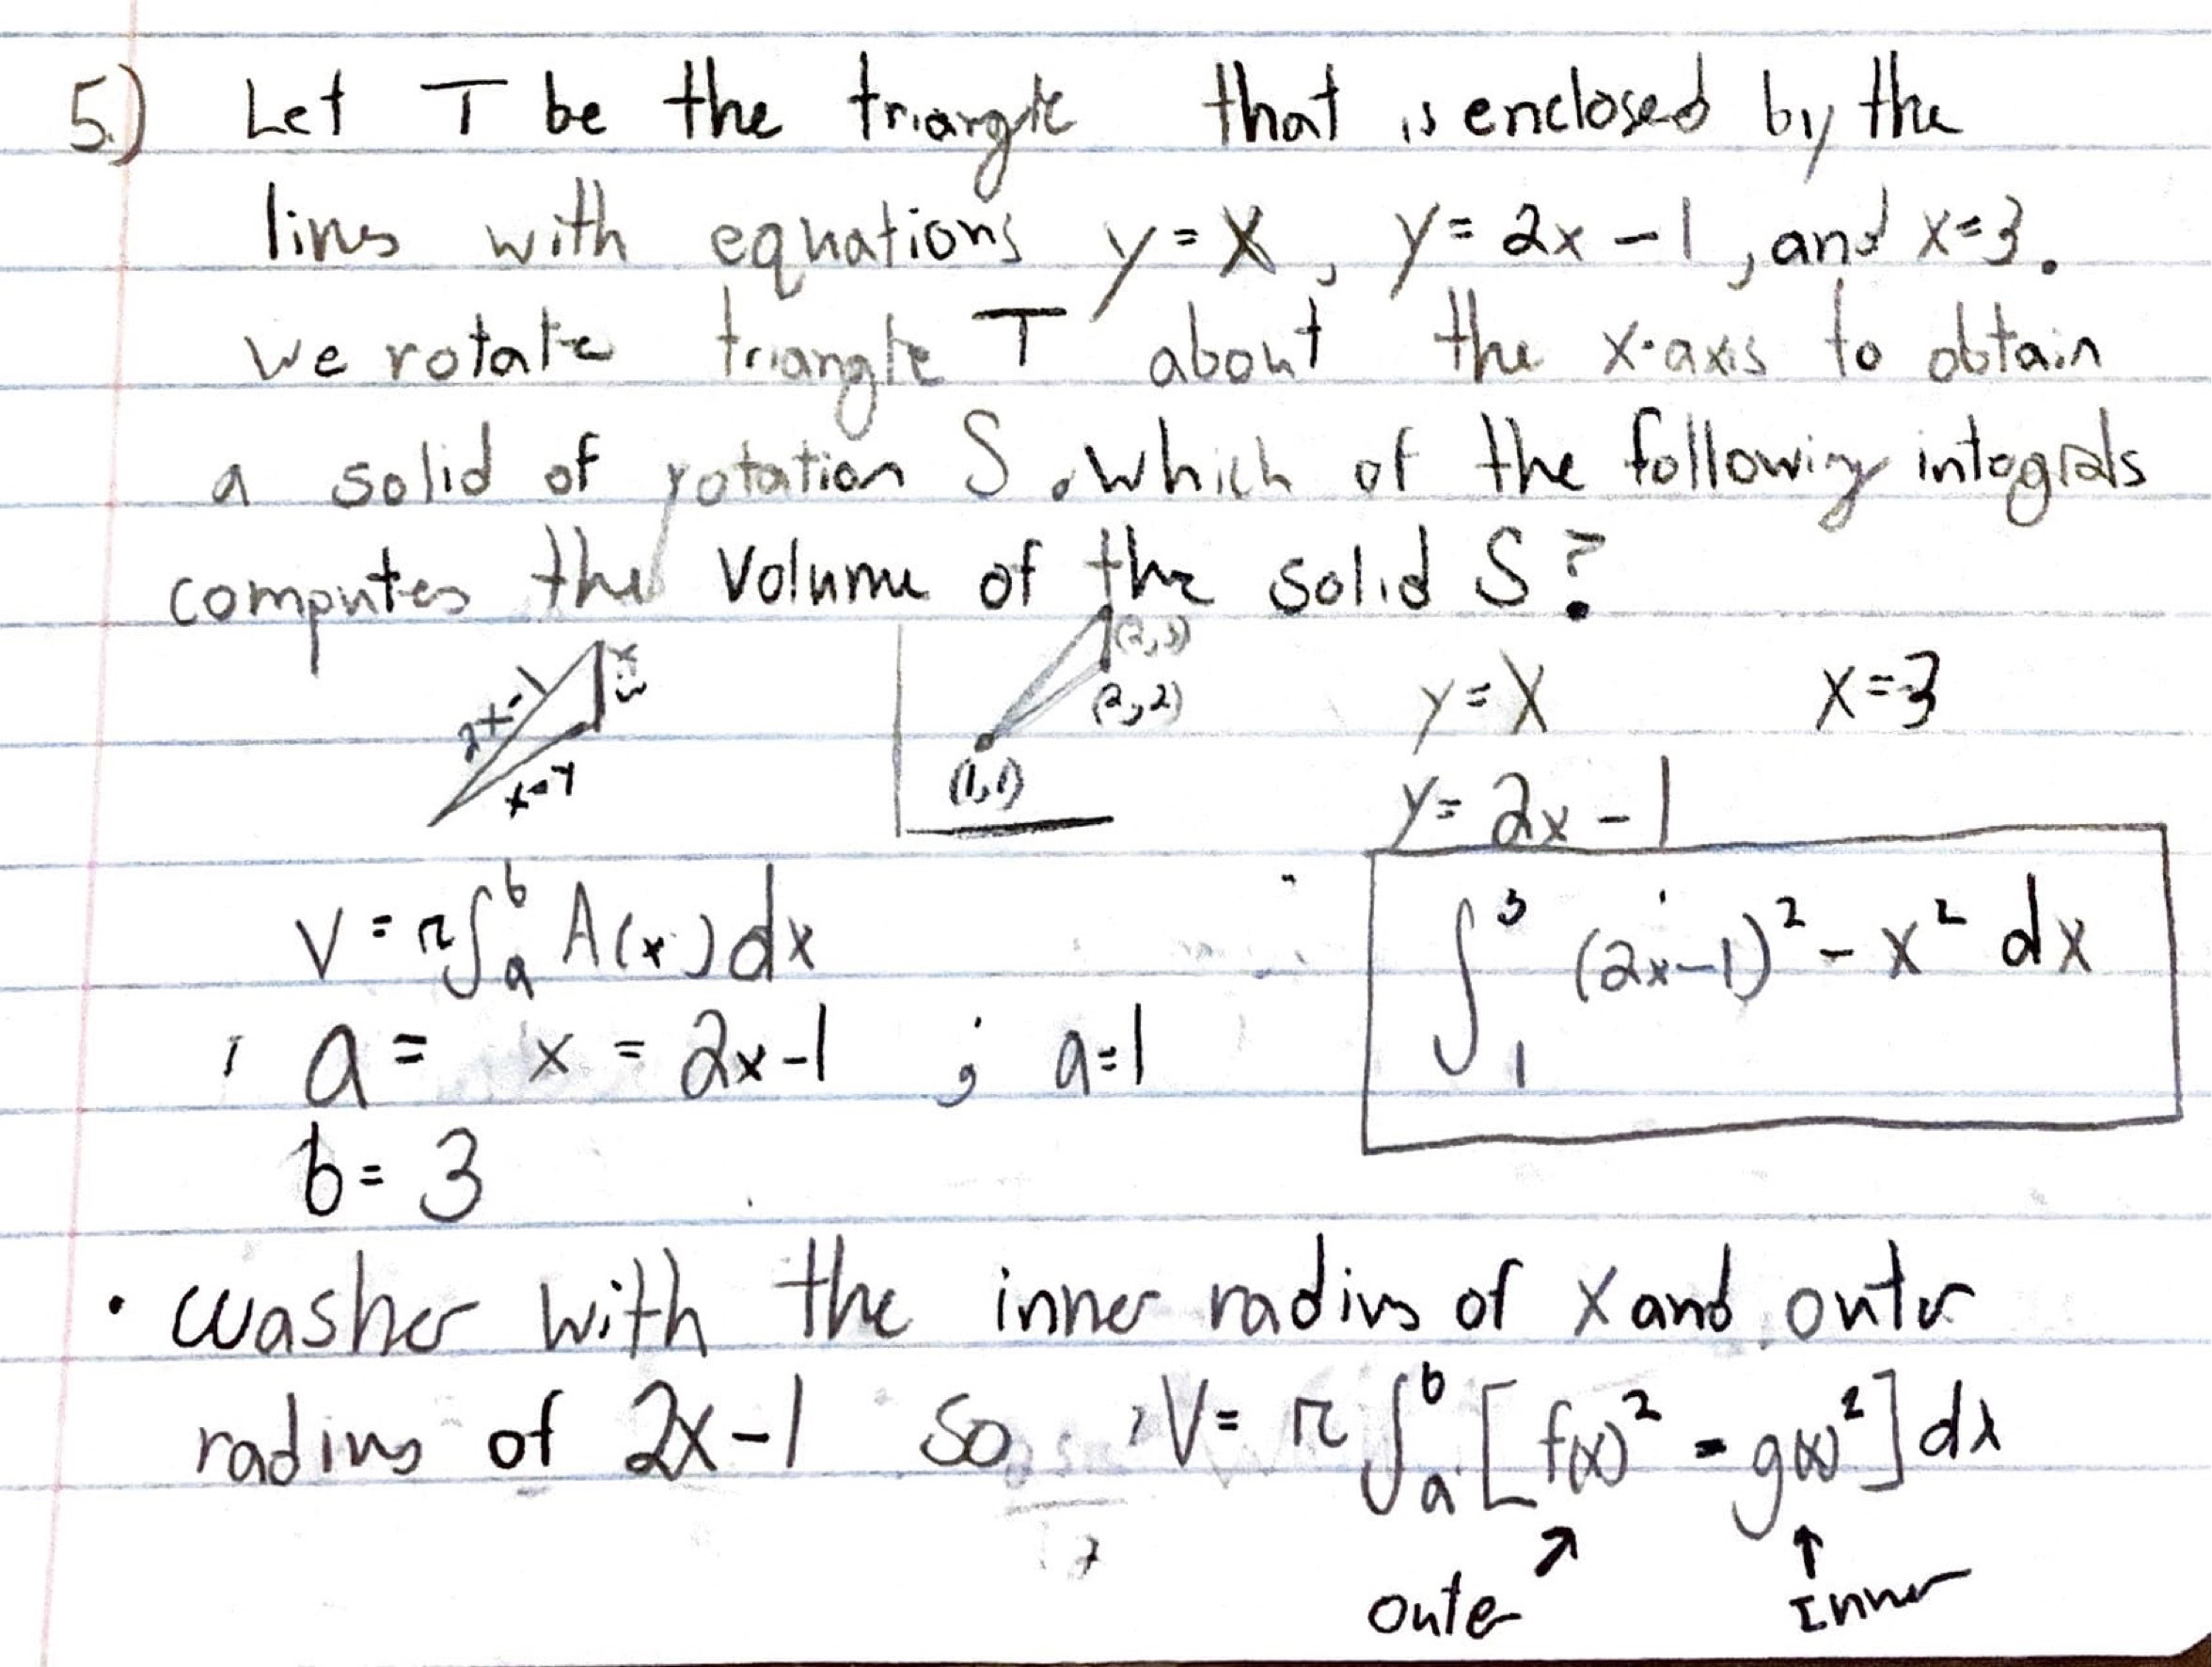 5.) Let T be the triangle that is enclosed by the
lines with equations y=x, y=2x-1, and x=3.
We rotate triangle T about the x-axis to obtain
a solid of rotation S. which of the following integrals
computes the Volume of the solid S?
2x-1 x=3
x=y
(2,3)
(2,2)
(1,1)
y=x x=3
y=2x-1
V=π∫ₐᵇ A(x)dx
∫₁³ (2x-1)²-x² dx
a= x=2x-1 ; a=1
b=3
• washer with the inner radius of x and outer
radius of 2x-1 so V=π∫ₐᵇ [f(x)²-g(x)²]dx
outer Inner